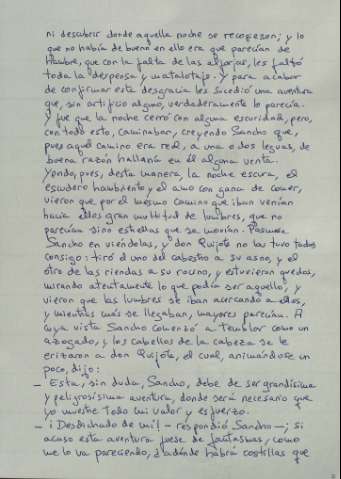 ni descubrir donde aquella noche se recogesen; y lo
que no había de bueno en ello era que parecían de
hambre, que con la falta de las alforjas, les faltó
toda la despensa y matalotaje. Y para acabar
de confirmar esta desgracia les sucedió una aventura
que, sin artificio alguno, verdaderamente lo parecía.
Y fue que la noche cerró con alguna escuridad, pero,
con todo esto, caminaban, creyendo Sancho que,
pues aquel camino era real, a una o dos leguas, de
buena razón hallaría en él alguna venta.
Yendo, pues, desta manera, la noche escura, el
escudero hambriento y el amo con gana de comer,
vieron que por el mesmo camino que iban venían
hacia ellos gran multitud de lumbres, que no
parecían sino estrellas que se movían. Pasmose
Sancho en viéndolas, y don Quijote no las tuvo todas
consigo: tiró el uno del cabestro a su asno, y el
otro de las riendas a su rocino, y estuvieron quedos,
mirando atentamente lo que podía ser aquello, y
vieron que las lumbres se iban acercando a ellos,
y mientras más se llegaban, mayores parecían. A
cuya vista Sancho comenzó a temblar como un
azogado, y los cabellos de la cabeza se le
erizaron a don Quijote, el cual, animándose un
poco, dijo:
– Esta, sin duda, Sancho, debe de ser grandísima
y peligrosísima aventura, donde será necesario que
yo muestre todo mi valor y esfuerzo.
– ¡Desdichado de mí! – respondió Sancho –; si
acaso esta aventura fuese de fantasmas, como
me lo va pareciendo, ¿adónde habrá costillas que